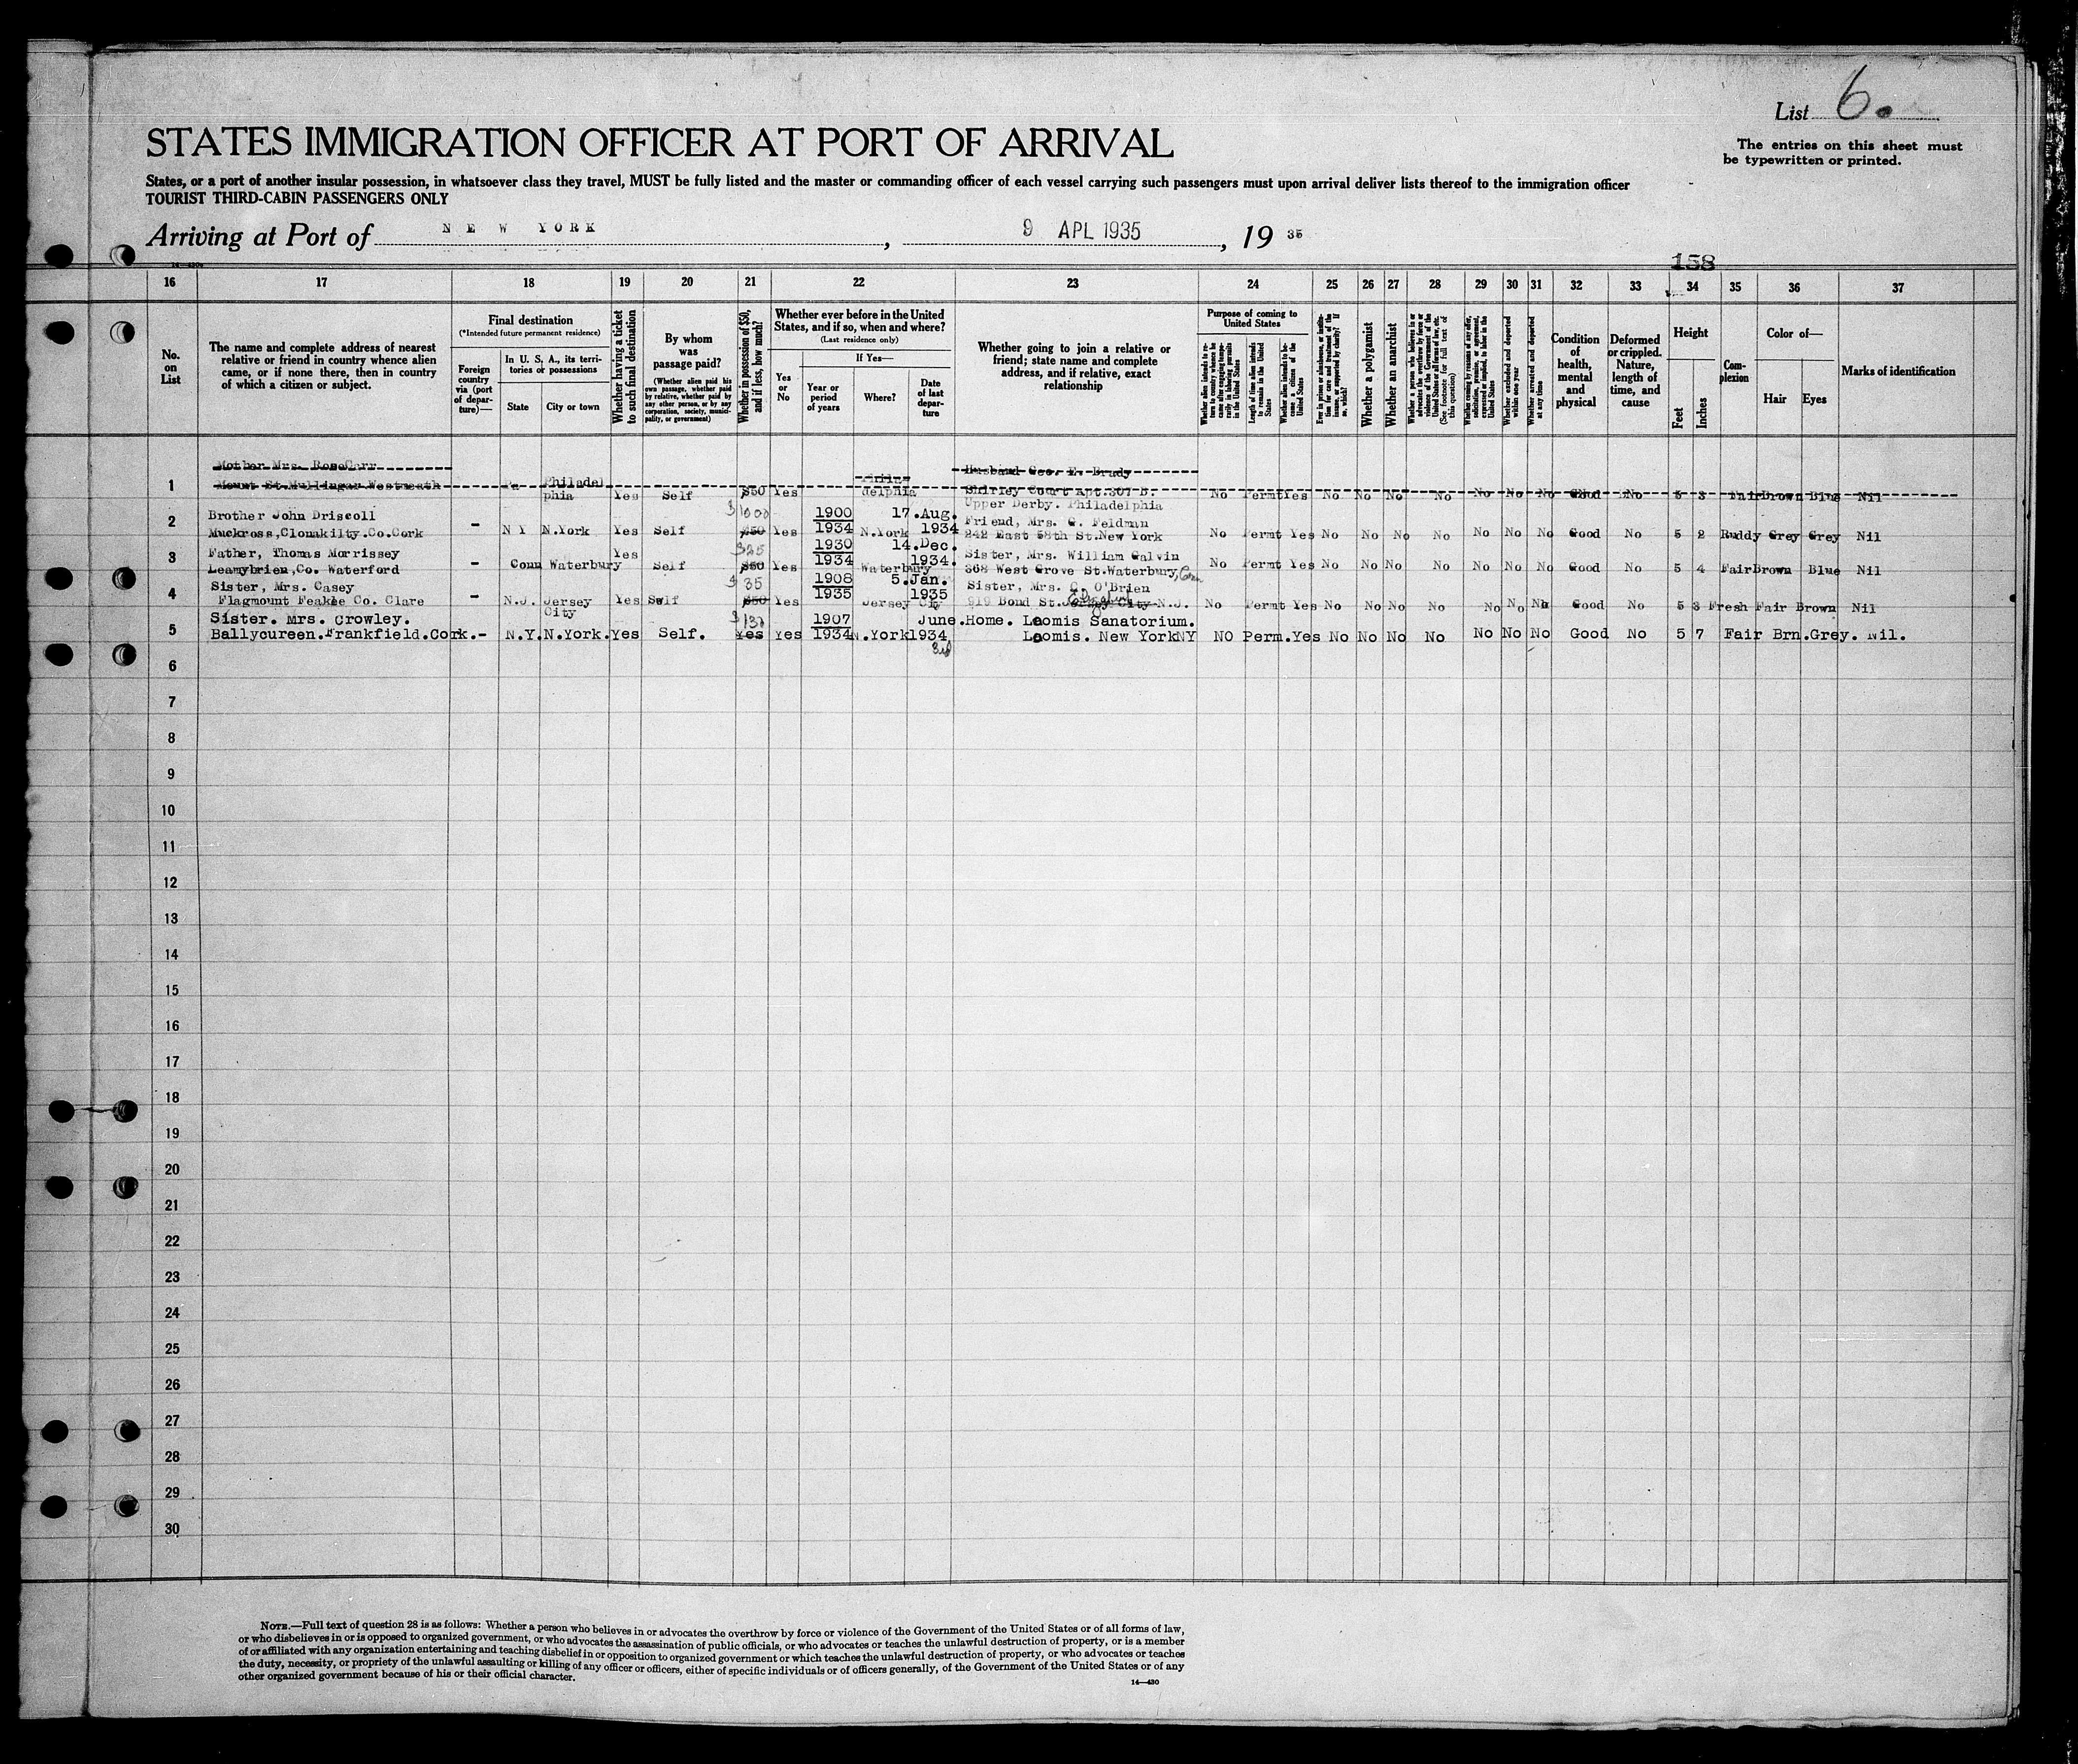 List 6.
STATES IMMIGRATION OFFICER AT PORT OF ARRIVAL
The entries on this sheet must
be typewritten or printed.
States, or a port of another insular possession, in whatsoever class they travel, MUST be fully listed and the master or commanding officer of each vessel carrying such passengers must upon arrival deliver lists thereof to the immigration officer
TOURIST THIRD-CABIN PASSENGERS ONLY
Arriving at Port of NEW YORK, 9 APL 1935, 19 35
158
16 17 18 19 20 21 22 23 24 25 26 27 28 29 30 31 32 33 34 35 36 37
No. on List
The name and complete address of nearest
relative or friend in country whence alien
came, or if none there, then in country
of which a citizen or subject.
Final destination
(*Intended future permanent residence)
Foreign country via (port of departure)—
In U. S. A., its territories or possessions
State
City or town
Whether having a ticket to such final destination
By whom was passage paid?
(Whether alien paid his own passage, whether paid by relative, whether paid by any other person, or by any corporation, society, municipality, or government)
Whether in possession of $50, and if less, how much?
Whether ever before in the United States, and if so, when and where?
(Last residence only)
If Yes—
Yes or No
Year or period of years
Where?
Date of last departure
Whether going to join a relative or
friend; state name and complete
address, and if relative, exact
relationship
Purpose of coming to United States
Whether a polygamist
Whether an anarchist
Whether excluded and deported within one year
Whether arrested and deported at any time
Condition of health, mental and physical
Deformed or crippled. Nature, length of time, and cause
Height
Feet
Inches
Complexion
Color of—
Hair
Eyes
Marks of identification
Mother Mrs. Rose Carr Husband Geo. E. Brady
1 Mount St. Mullingar Westmeath Pa Philadelphia Yes Self $50 Yes Philadelphia Shirley Court Apt. 307 B. No Permt Yes No No No No No No No Good No 5 3 Fair Brown Blue Nil
Upper Derby. Philadelphia
2 Brother John Driscoll $1000 1900 17.Aug. Friend, Mrs. G. Feldman
Muckross, Clonakilty. Co. Cork - N Y N.York Yes Self $50 Yes 1934 N.York 1934 242 East 58th St. New York No Permt Yes No No No No No No No Good No 5 2 Ruddy Grey Grey Nil
3 Father, Thomas Morrissey Yes $25 1930 14.Dec. Sister, Mrs. William Galvin
Leamybrien, Co. Waterford - Conn Waterbury Self $50 Yes 1934 Waterbury 1934. 368 West Grove St. Waterbury, Conn No Permt Yes No No No No No No No Good No 5 4 Fair Brown Blue Nil
4 Sister, Mrs. Casey $35 1908 5.Jan. Sister, Mrs. C. O'Brien
Flagmount Feakle Co. Clare - N.J. Jersey City Yes Self $50 Yes 1935 Jersey City 1935 919 Bond St. Jersey City N.J. No Permt Yes No No No No No No No Good No 5 3 Fresh Fair Brown Nil
5 Sister. Mrs. Crowley. 1907 June. Home. Loomis Sanatorium.
Ballycureen. Frankfield. Cork. - N.Y. N.York. Yes Self. Yes Yes 1934 N.York 1934 Loomis. New York NY NO Perm. Yes No No No No No No No Good No 5 7 Fair Brn. Grey. Nil.
6
7
8
9
10
11
12
13
14
15
16
17
18
19
20
21
22
23
24
25
26
27
28
29
30
NOTE.—Full text of question 28 is as follows: Whether a person who believes in or advocates the overthrow by force or violence of the Government of the United States or of all forms of law,
or who disbelieves in or is opposed to organized government, or who advocates the assassination of public officials, or who advocates or teaches the unlawful destruction of property, or is a member
of or affiliated with any organization entertaining and teaching disbelief in or opposition to organized government or which teaches the unlawful destruction of property, or who advocates or teaches
the duty, necessity, or propriety of the unlawful assaulting or killing of any officer or officers, either of specific individuals or of officers generally, of the Government of the United States or of any
other organized government because of his or their official character.
14—430